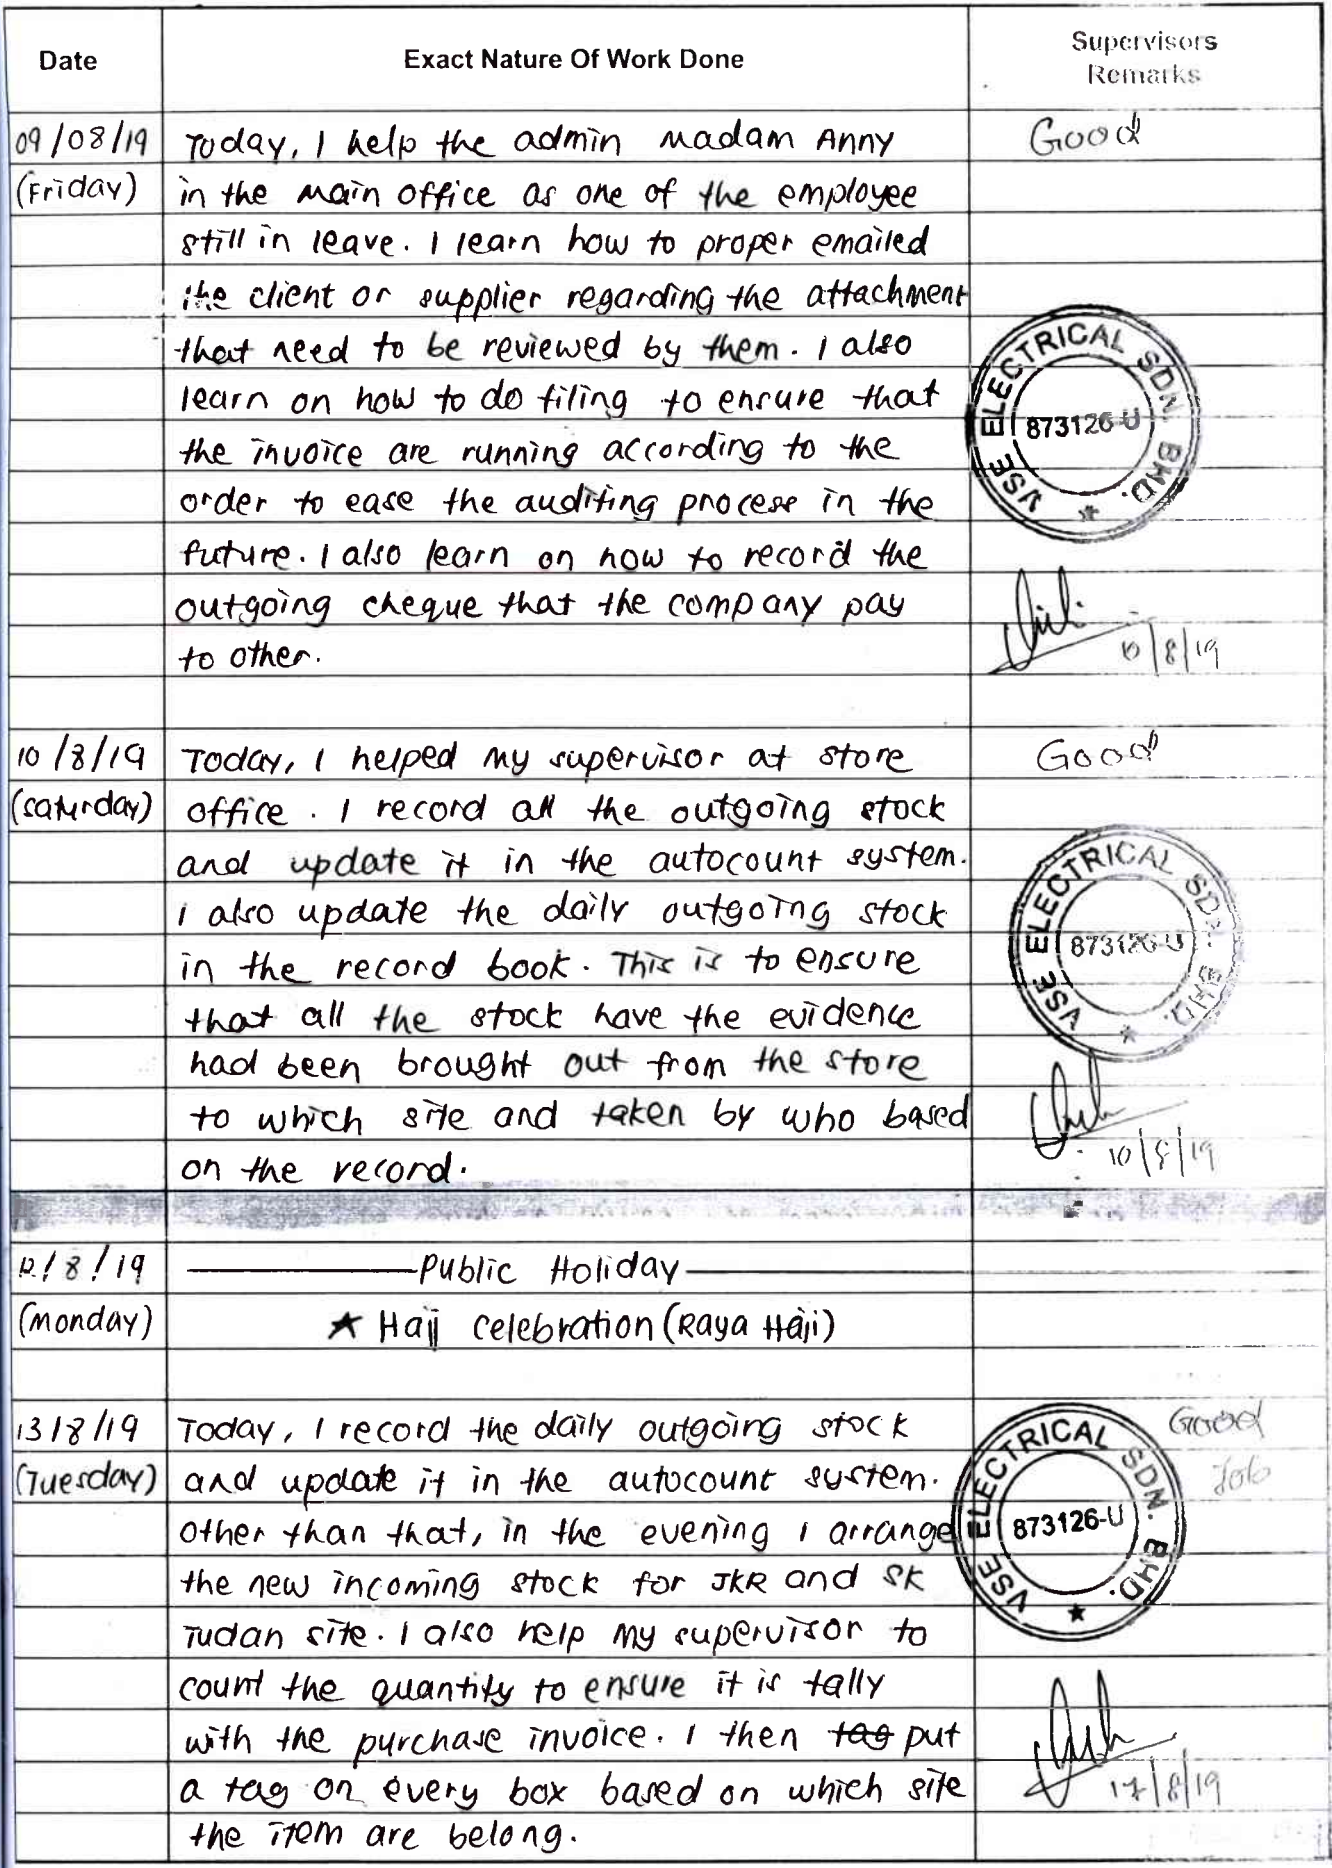 Date Exact Nature Of Work Done Supervisors
Remarks
09/08/19 Today, I help the admin Madam Anny Good
(Friday) in the main office as one of the employee
still in leave. I learn how to proper emailed
the client or supplier regarding the attachment
that need to be reviewed by them. I also
learn on how to do filing to ensure that
the invoice are running according to the
order to ease the auditing process in the
future. I also learn on how to record the
outgoing cheque that the company pay
to other.
VSE ELECTRICAL SDN. BHD.
873126-U
10/8/19
10/8/19 Today, I helped my supervisor at store Good
(Saturday) office. I record all the outgoing stock
and update it in the autocount system.
I also update the daily outgoing stock
in the record book. This is to ensure
that all the stock have the evidence
had been brought out from the store
to which site and taken by who based
on the record.
VSE ELECTRICAL SDN. BHD.
873126-U
10/8/19
12/8/19 Public Holiday
(Monday) ★ Hajj celebration (Raya Haji)
13/8/19 Today, I record the daily outgoing stock Good
(Tuesday) and update it in the autocount system. Job
Other than that, in the evening I arrange
the new incoming stock for JKR and SK
Tudan site. I also help my supervisor to
count the quantity to ensure it is tally
with the purchase invoice. I then tag put
a tag on every box based on which site
the item are belong.
VSE ELECTRICAL SDN. BHD.
873126-U
17/8/19